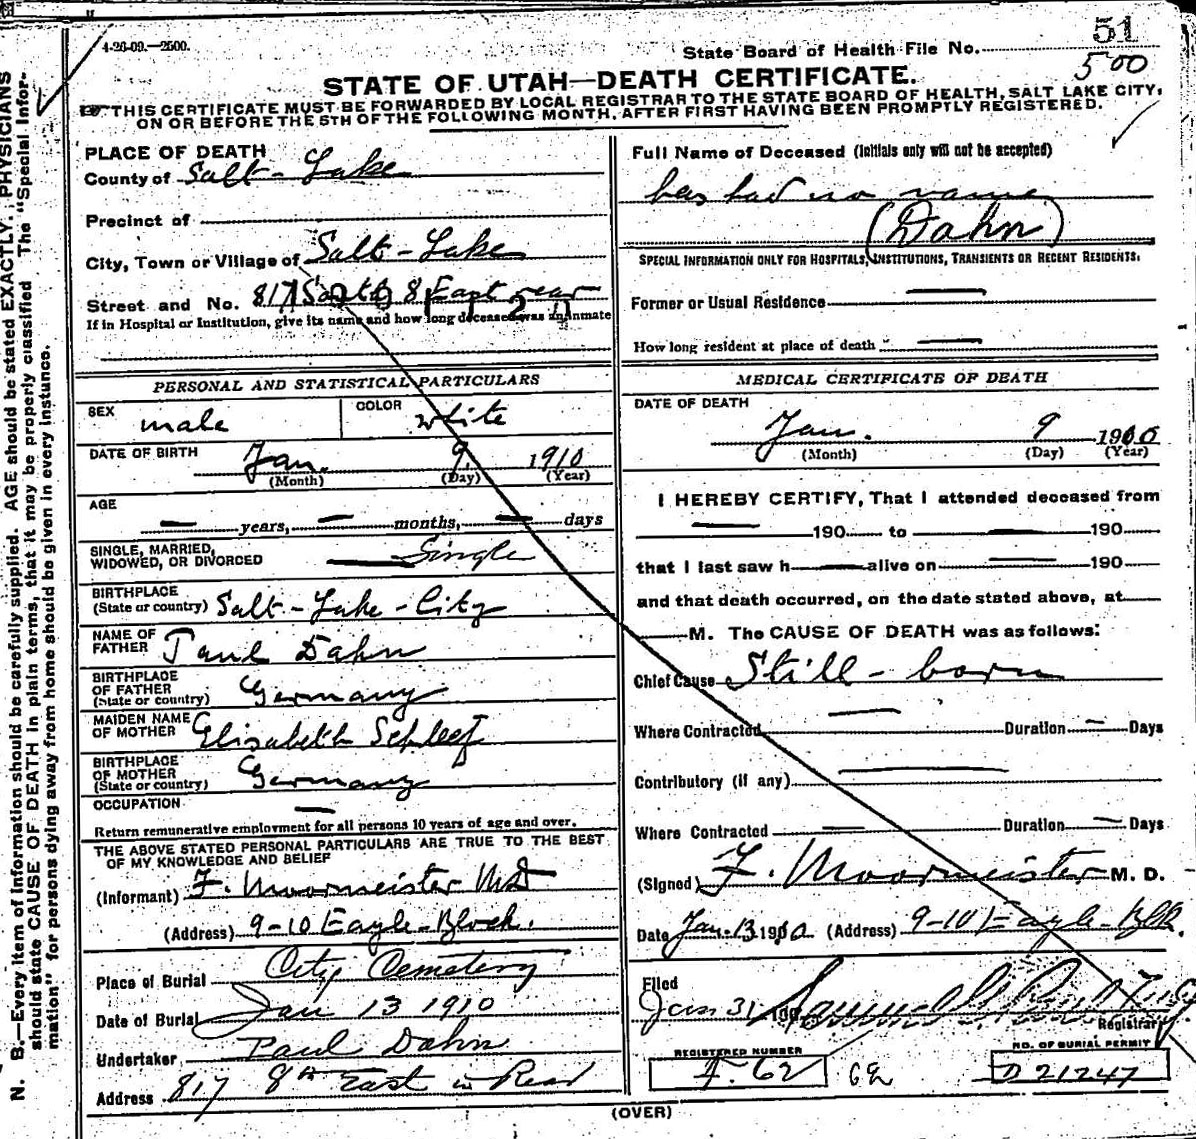 4-26-09.—2500.
State Board of Health File No. 51
500
STATE OF UTAH—DEATH CERTIFICATE.
THIS CERTIFICATE MUST BE FORWARDED BY LOCAL REGISTRAR TO THE STATE BOARD OF HEALTH, SALT LAKE CITY,
ON OR BEFORE THE 5TH OF THE FOLLOWING MONTH, AFTER FIRST HAVING BEEN PROMPTLY REGISTERED.
N. B.—Every item of information should be carefully supplied. AGE should be stated EXACTLY. PHYSICIANS
should state CAUSE OF DEATH in plain terms, that it may be properly classified The "Special Infor-
mation" for persons dying away from home should be given in every instance.
PLACE OF DEATH
County of Salt-Lake
Precinct of
City, Town or Village of Salt-Lake
Street and No. 817 South 8 East rear
If in Hospital or Institution, give its name and how long deceased was an Inmate
PERSONAL AND STATISTICAL PARTICULARS
SEX male COLOR white
DATE OF BIRTH Jan. 9. 1910
(Month) (Day) (Year)
AGE — years, — months, — days
SINGLE, MARRIED,
WIDOWED, OR DIVORCED Single
BIRTHPLACE
(State or country) Salt-Lake-City
NAME OF
FATHER Paul Dahn
BIRTHPLACE
OF FATHER
(State or country) Germany
MAIDEN NAME
OF MOTHER Elisabeth Schleef
BIRTHPLACE
OF MOTHER
(State or country) Germany
OCCUPATION —
Return remunerative employment for all persons 10 years of age and over.
THE ABOVE STATED PERSONAL PARTICULARS ARE TRUE TO THE BEST
OF MY KNOWLEDGE AND BELIEF
(Informant) F. Moormeister MD
(Address) 9-10 Eagle-Block.
Place of Burial City Cemetery
Date of Burial Jan 13 1910
Undertaker Paul Dahn
Address 817 8th East in Rear
Full Name of Deceased (Initials only will not be accepted)
has had no name
(Dahn)
SPECIAL INFORMATION ONLY FOR HOSPITALS, INSTITUTIONS, TRANSIENTS OR RECENT RESIDENTS.
Former or Usual Residence —
How long resident at place of death —
MEDICAL CERTIFICATE OF DEATH
DATE OF DEATH
Jan. 9 1910
(Month) (Day) (Year)
I HEREBY CERTIFY, That I attended deceased from
— 190 to — 190
that I last saw h — alive on — 190
and that death occurred, on the date stated above, at
M. The CAUSE OF DEATH was as follows:
Chief Cause Still-born
Where Contracted — Duration — Days
Contributory (if any) —
Where Contracted — Duration — Days
(Signed) F. Moormeister M. D.
Date Jan. 13 1910 (Address) 9-10 Eagle-Blk.
Filed
Jan 31 190
Registrar
REGISTERED NUMBER
F. 62 62
NO. OF BURIAL PERMIT
D 21247
(OVER)